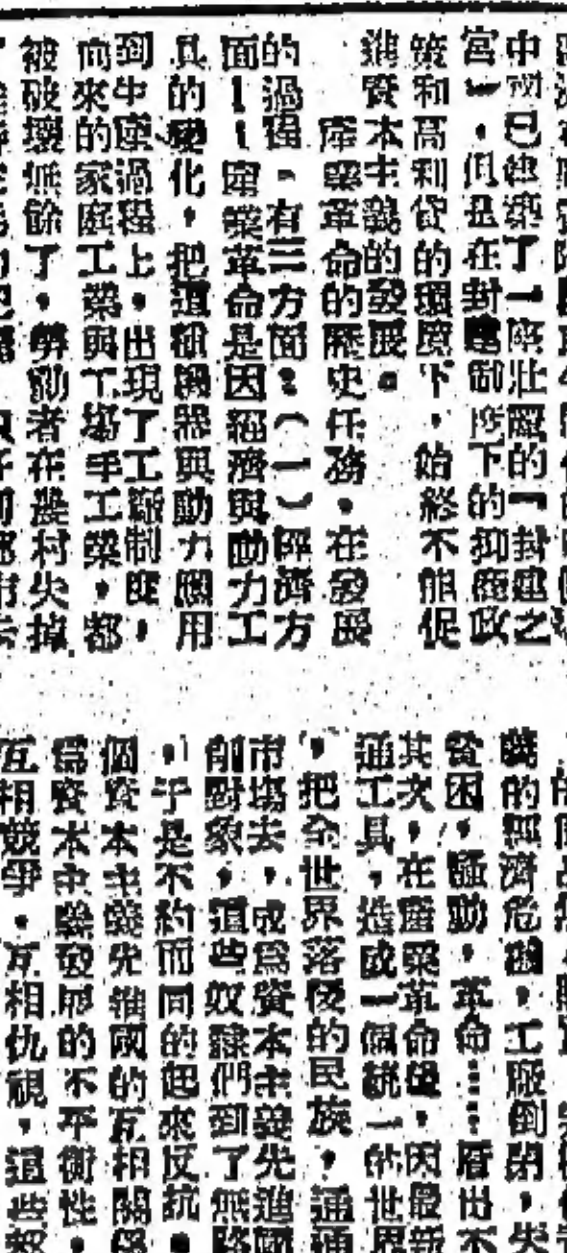 中就已建築了一座壯麗的「封建之
宮」，但是在封建制度下的抑商政
策和高利貸的環境下，始終不能促
進資本主義的發展。
產業革命的歷史任務，在發展
的過程，有三方面：（一）經濟方
面——產業革命是因經濟與動力工
具的變化，把這種機器與動力應用
到生產過程上，出現了工廠制度，
向來的家庭工業與工場手工業，都
被破壞無餘了，勞動者在農村失掉
的經濟危機，工廠倒閉，失
貧困，騷動，革命……層出不
其次，在產業革命後，因最新
通工具，造成一個統一的世界
，把全世界落後的民族，通通
市場去，成為資本主義先進國
削對象，這些奴隸們到了無路
，于是不約而同的起來反抗，
個資本主義先進國的互相關係
為資本主義發展的不平衡性，
互相競爭，互相仇視，這些